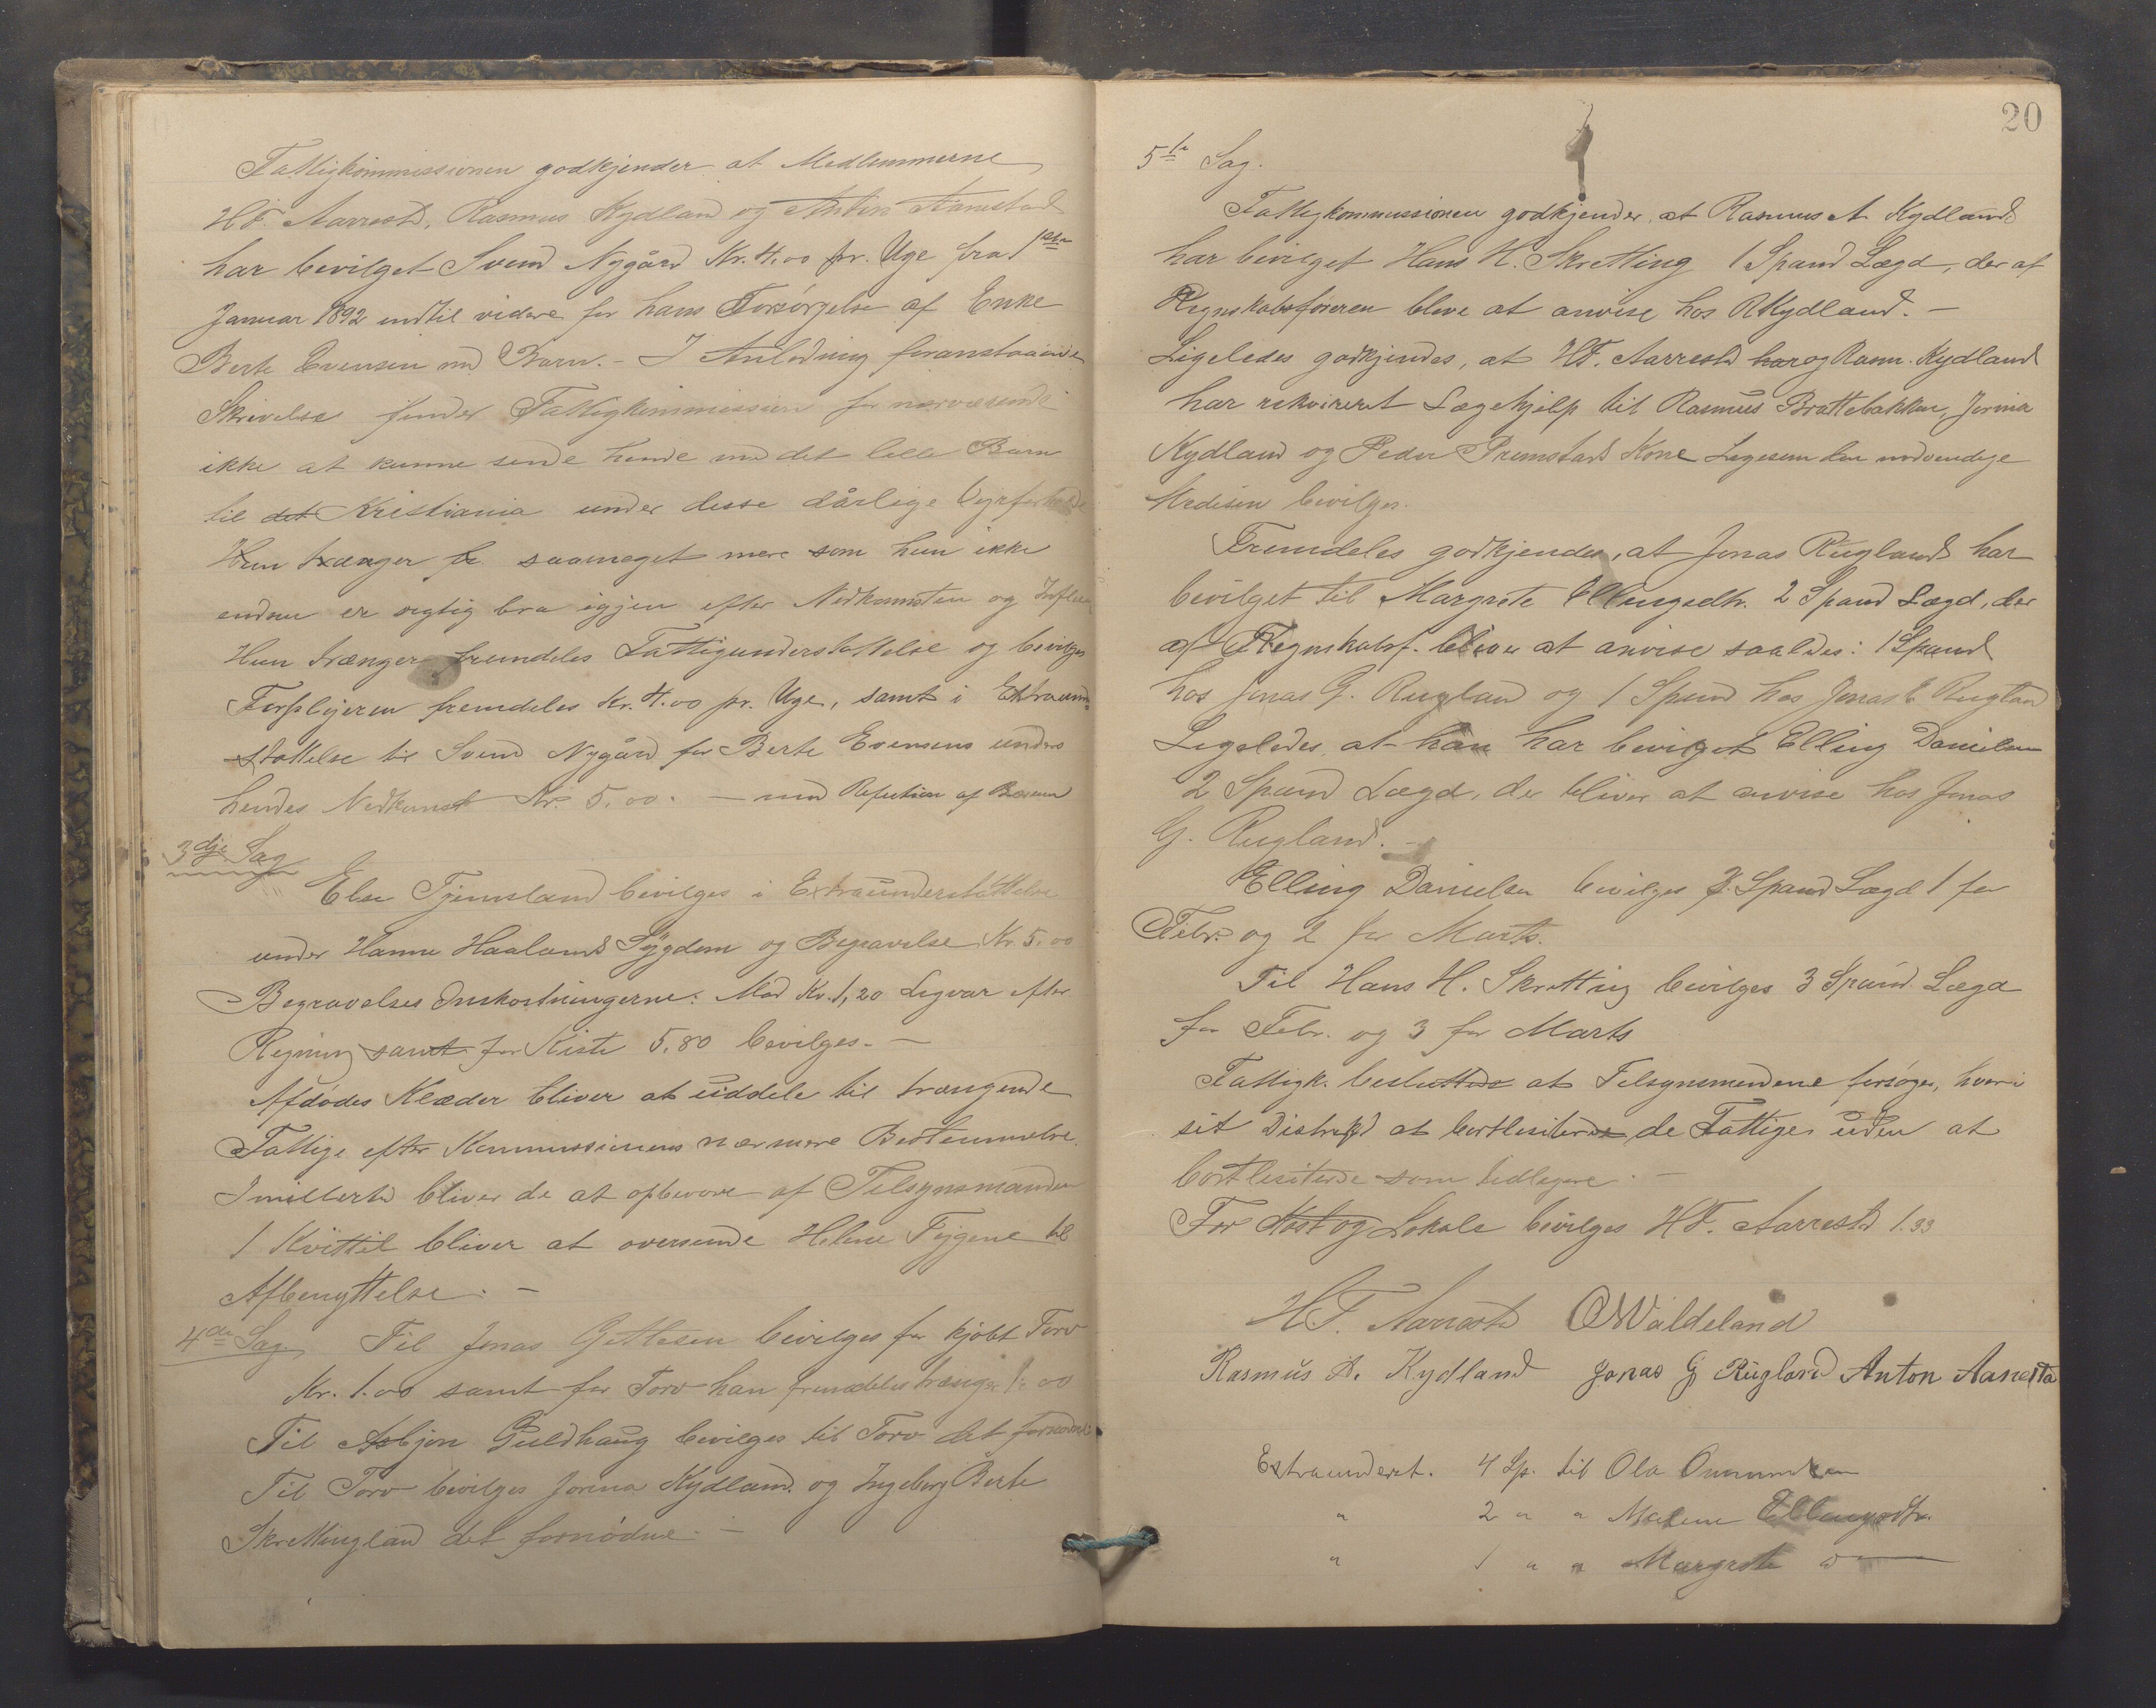 Fattigkommissionen godkjender at Medlemmerne
H.F. Aarrestd, Rasmus Kydland og Anton Aanestad
har bevilget Svend Nygård Kr. 4.00 pr. Uge fra 1ste
Januar 1892 indtil videre for hans Forsörgelse af Enke
Berte Evensen med Barn. – I Anledning foranstaaende
Skrivelse finder Fattigkommission for nærværende
ikke at kunne sende hende med det lille Barn
til det Kristiania under desse dårlige Vejrforholde
Hun trænger saameget mere som hun ikke
endnu er rigtig bra igjen efter Nedkomsten og
Hun trænger fremdeles Fattigunderstøttelse og bevilges
Forplejeren fremdeles Kr. 4.00 pr. Uge, samt i Extraunder-
støttelse til Svend Nygård for Berte Evensens under
hendes Nedkomst Kr. 5.00. – med Refution af Bærum
3dje Sag
Else Tjemsland bevilges i Extraunderstøttelse
under Hanne Haalands Sygdom og Begravelse Kr. 5.00
Begravelses Omkostningerne: Mad Kr. 1,20 Ligvar efter
Regning samt for Kiste 5,80 bevilges. –
Afdødes Klæder bliver at uddele til trængende
Fattige efter Kommissionens nærmere Bestemmelse.
Imidlertid bliver de at opbevare af Tilsynsmanden
1 Kvittil bliver at oversende Helene Fygene til
Afbenyttelse. –
4de Sag. Til Jonas Gitlesen bevilges for kjøbt Torv
Kr. 1.00 samt for Torv han fremdeles trænger 1.00
Til Asbjørn Guldhaug bevilges til Torv det fornødne
Til Torv bevilges Jorina Kydland og Ingeborg Berte
Skrettingland det fornødne. –
20
5te Sag.
Fattigkommissionen godkjender, at Rasmus A. Kydland
har bevilget Hans H. Skretting 1 Spand Lægd, der af
Regnskabsføreren bleve at anvise hos R Kydland. –
Ligeledes godkjendes, at H.F. Aarrestd har og Rasm. Kydland
har rekvireret Lægehjelp til Rasmus Brattebakken, Jorina
Kydland og Peder Premstads Kone Ligesom den nødvendige
Medisin bevilges.
Fremdeles godkjendes, at Jonas Rugland har
bevilget til Margrete Ellingsdtr. 2 Spand Lægd, der
af Regnskabsf. bliver at anvise saaledes: 1 Spand
hos Jonas G. Rugland og 1 Spand hos Jonas E. Rugland
Ligeledes at han har bevilget Elling Danielsen
2 Spand Lægd, der bliver at anvise hos Jonas
G. Rugland. –
Elling Danielsen bevilges 3 Spand Lægd 1 for
Febr. og 2 for Marts.
Til Hans H. Skretting bevilges 3 Spand Lægd
for Febr. og 3 for Marts
Fattigk. besluttede at Tilsynsmendene forsøger, hver i
sit Distrikt at bortlisitere de Fattige uden at
bortlisitere som tidligere. –
For Kost og Lokale bevilges H.F. Aarrestd 1.33
H.F. Aarrestd O Waldeland
Rasmus A. Kydland Jonas G Rugland Anton Aanesta
Extraunderst. 4 Sp. til Ola Ommundsen
" 2 " " Malene Ellingsdtr.
" 1 " " Margrete "